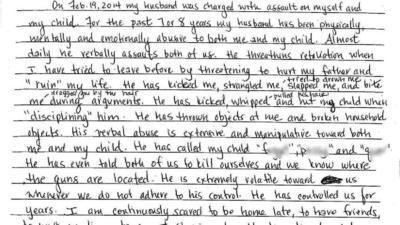 On Feb. 19, 2014 my husband was charged with assault on myself and
my child. For the past 7 or 8 years my husband has been physically,
mentally and emotionally abusive to both me and my child. Almost
daily he verbally assaults both of us. He threathens retribution when
I have tried to leave before by threatening to hurt my father and
tried to drown me
"ruin" my life. He has kicked me, strangled me, slapped me, and bite
dragged me by the hair pulled his hair
me during arguments. He has kicked, whipped and hit my child when
"disciplining" him. He has thrown objects at me and broken household
objects. His verbal abuse is extensive and manipulative toward both
me and my child. He has called my child "f " , p " and "q "
He has even told both of us to kill ourselves and we know where
the guns are located. He is extremely volatile toward us
whenever we do not adhere to his control. He has controlled us for
years. I am continuously scared to be home late, to have friends,